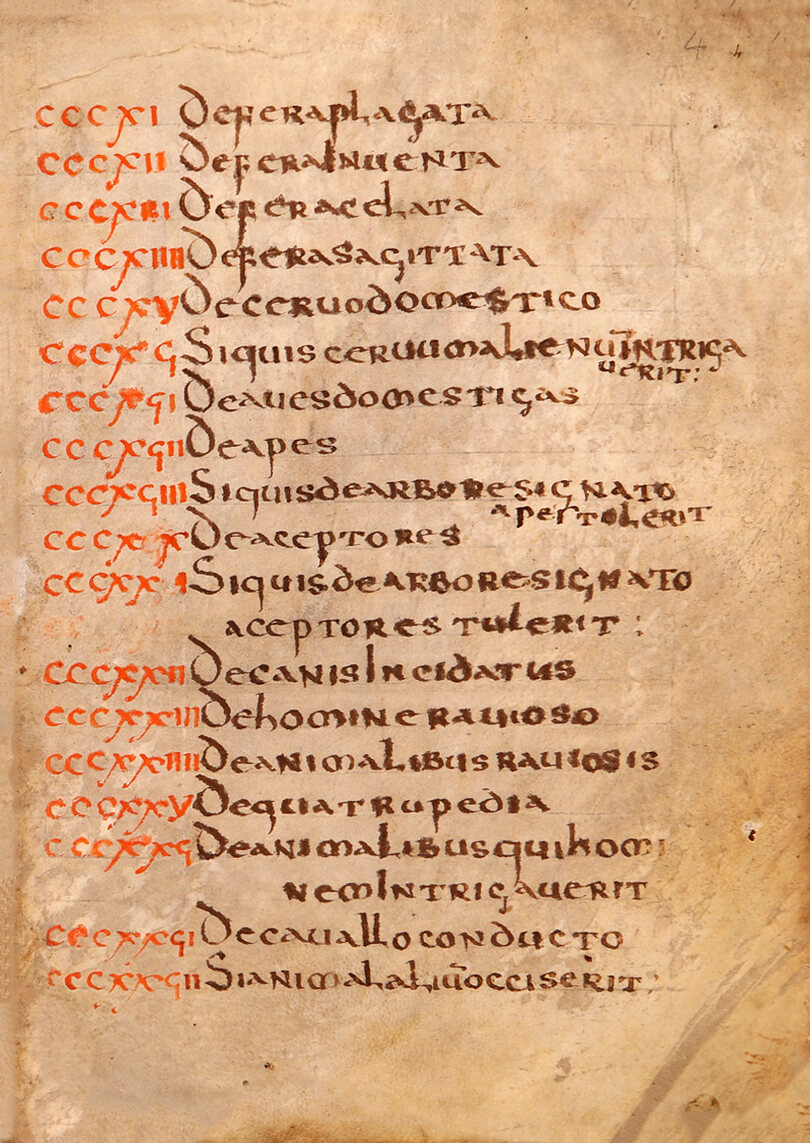 4 4
CCCXI Deferaplagata
CCCXII Deferainuenta
CCCXIII Deferacelata
CCCXIIII Deferasagittata
CCCXV Deceruodomestico
CCCXϛ Siquisceruumalienūintriga
uerit:
CCCXϛI Deauesdomesticas
CCCXϛII Deapes
CCCXϛIII Siquisdearboresignato
apestolerit
CCCXX Deaceptores
CCCXXI Siquisdearboresignato
aceptorestulerit :
CCCXXII Decanisincidatus
CCCXXIII Dehominerauioso
CCCXXIIII Deanimalibusrauiosis
CCCXXV Dequatrupedia
CCCXXϛ Deanimalibusquihomi
nemintrigauerit
CCCXXϛI Decaualloconducto
CCCXXϛII Sianimalaliūocciserit: